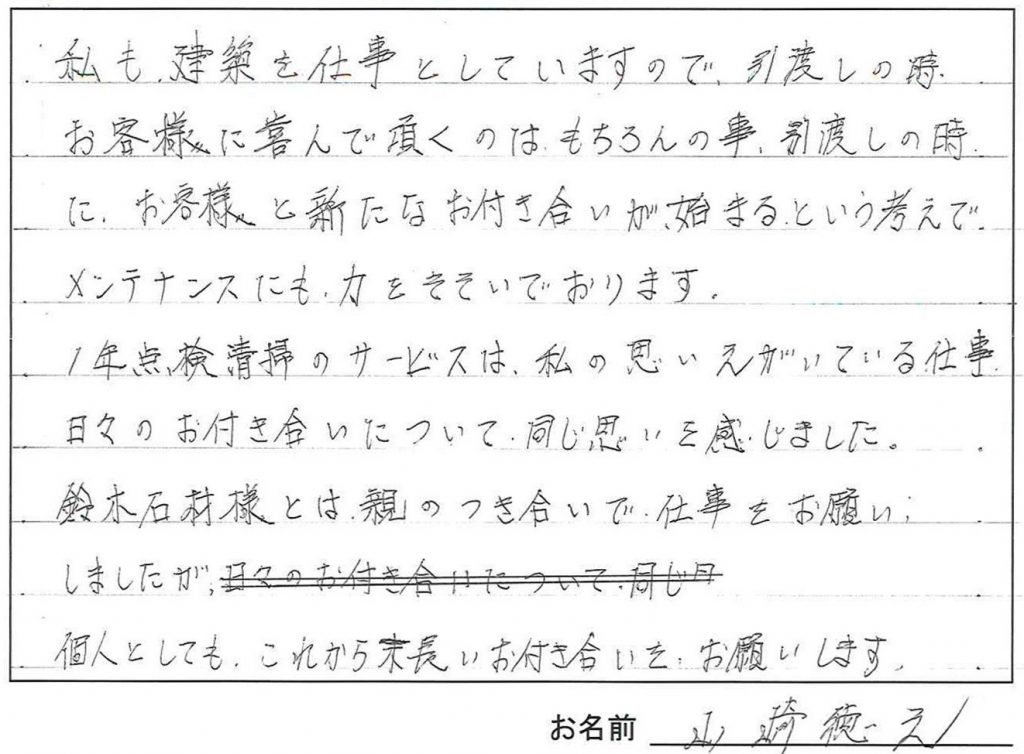 私も、建築を仕事としていますので、引渡しの時、
お客様に喜んで頂くのは、もちろんの事、引渡しの時
に、お客様と新たなお付き合いが、始まる、という考えで、
メンテナンスにも、力をそそいでおります。
1年点検清掃のサービスは、私の思いえがいている仕事、
日々のお付き合いについて、同じ思いを感じました。
鈴木石材様とは、親のつき合いで、仕事をお願い
しましたが、日々のお付き合いについて、同じ
個人としても、これから末長いお付き合いを、お願いします。
お名前 山崎徳